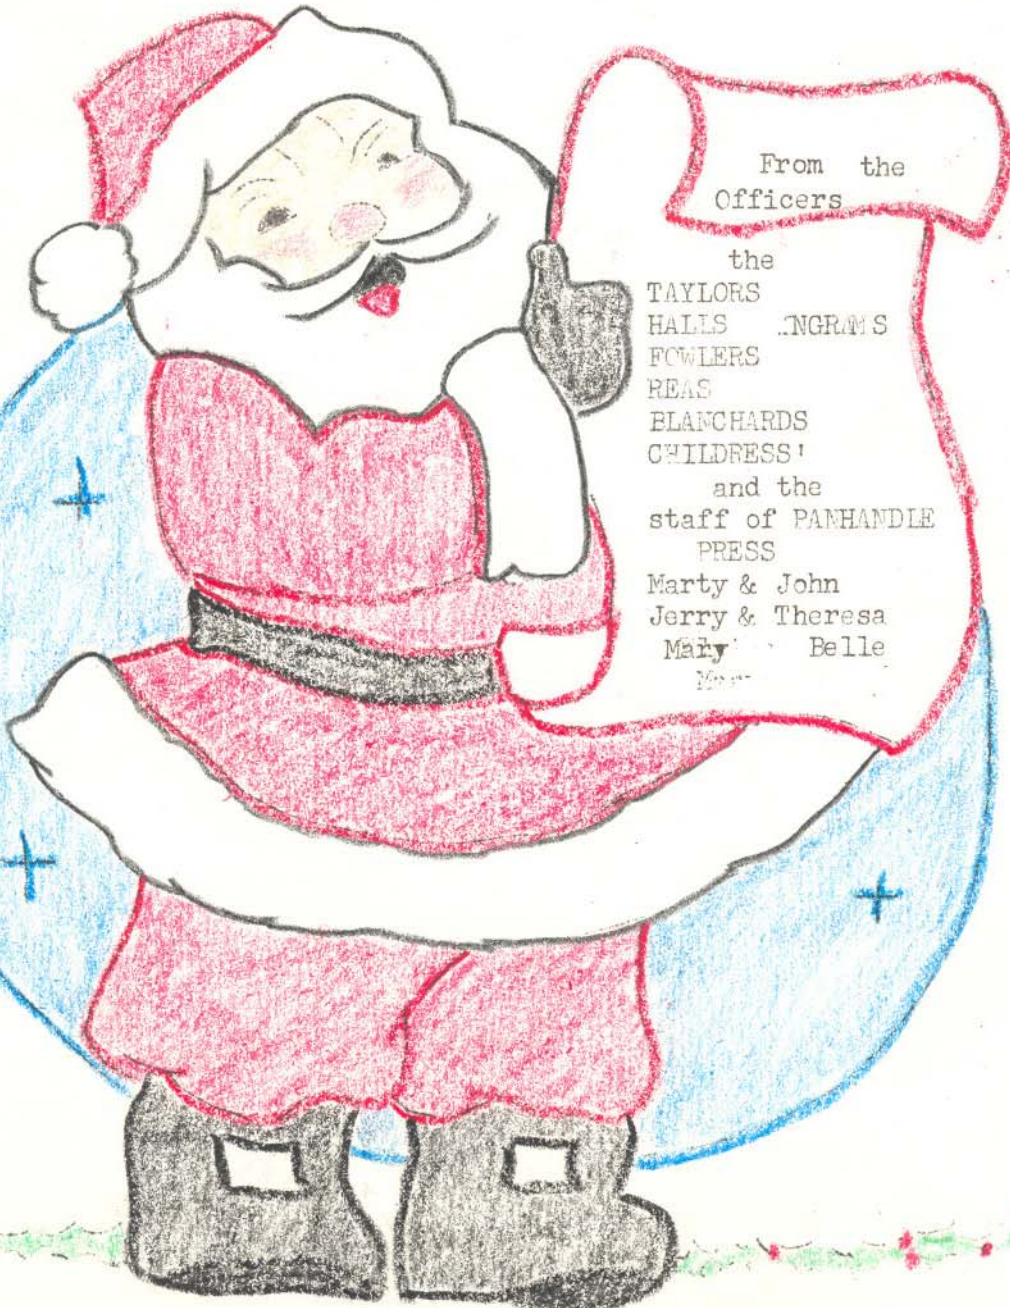 From the
Officers
the
TAYLORS
HALLS
FOWLERS
REAS
BLANCHARDS
CHILDRESS'
and the
staff of PANHANDLE
PRESS
Marty & John
Jerry & Theresa
Mary Belle